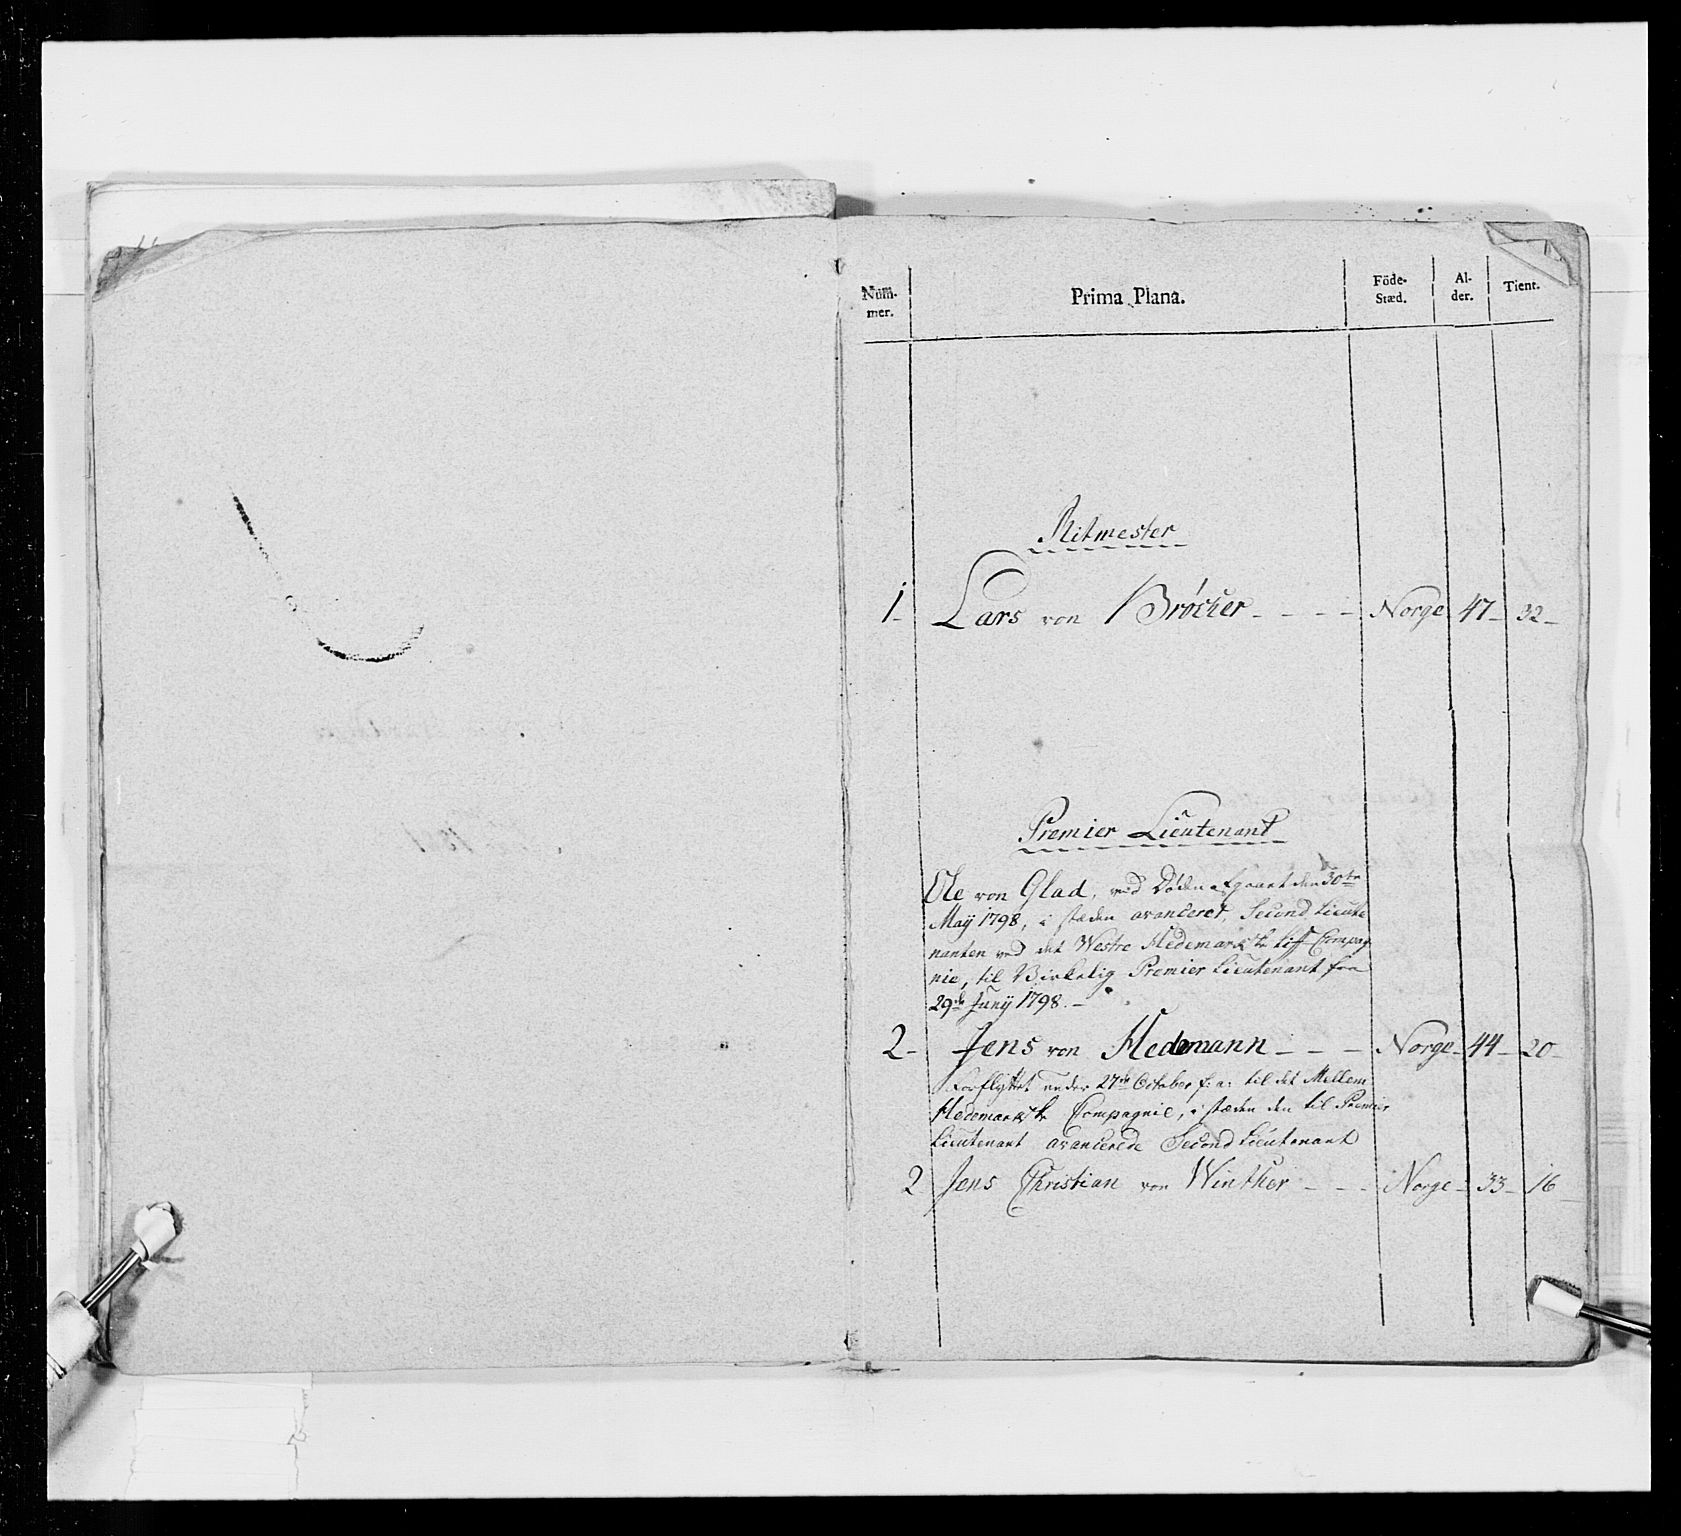 Num-
mer.
Prima Plana.
Föde-
Stæd.
Al-
der.
Tient.
Ritmester
1- Lars von Bröcker - - - - Norge 47- 32-
Premier Lieutenant
Ole von Glad, ved Döden afgaaet den 30te
May 1798, i stæden avanceret, Second Lieute
nanten ved det Westre Hedemarkske Liff Compag
nie, til Virkelig Premier Lieutenant fra
29de Junij 1798.-
2- Jens von Hedemann - - - Norge- 44- 20-
Forflyttet under 27de October f: a: til det Mellem
Hedemarkske Compagnie, i stæden den til Premier
Lieutenant avancerede Second Lieutenant
2 Jens Christian von Winther - - - Norge- 33- 16